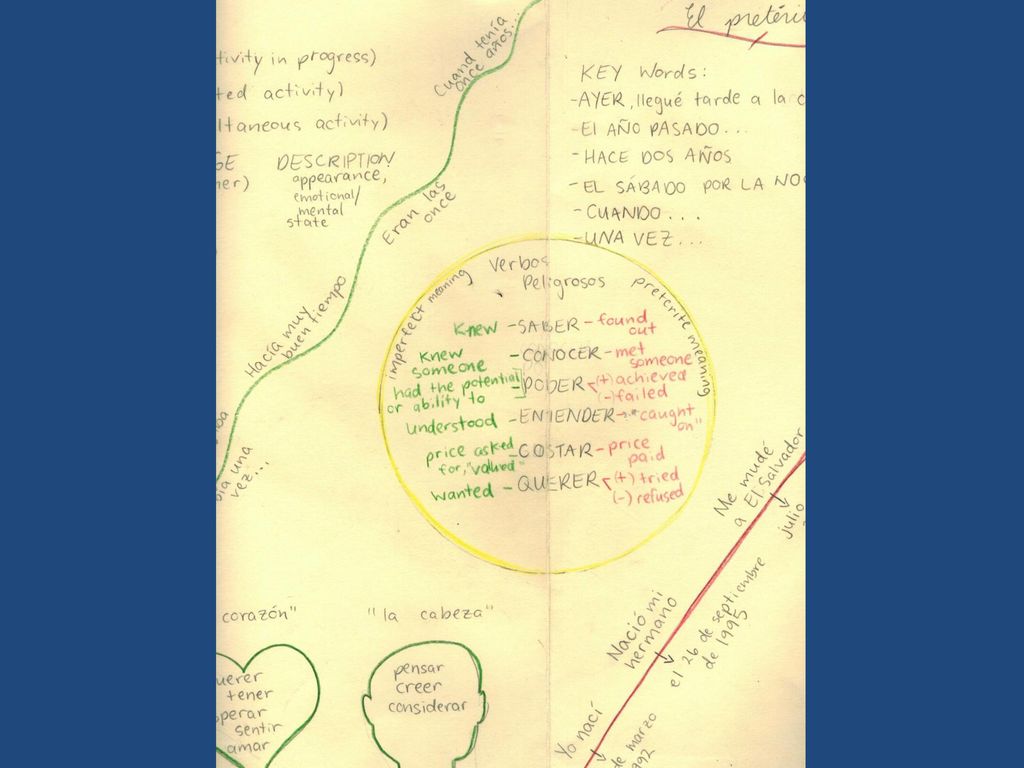 tivity in progress)
ted activity)
ltaneous activity)
GE DESCRIPTION
ner) appearance,
emotional/
mental
state
Cuand tenía
once años...
Eran las
once
Hacía muy
buen tiempo
bía una
vez...
El pretéri
KEY Words:
-AYER, llegué tarde a la c
-El AÑO PASADO...
-HACE DOS AÑOS
-EL SÁBADO POR LA NOC
-CUANDO...
-UNA VEZ...
Verbos
Peligrosos
imperfect meaning
preterite meaning
Knew -SABER- found
out
Knew
someone -CONOCER- met
someone
had the potential
or ability to -PODER (+) achieved
(-) failed
understood -ENTENDER- "caught
on"
price asked
for, "valued" -COSTAR- price
paid
wanted -QUERER (+) tried
(-) refused
corazón"
uerer
tener
perar
sentir
amar
"la cabeza"
pensar
creer
considerar
Me mudé
a El Salvador
julio
Nació mi
hermano
el 26 de septiembre
de 1995
Yo nací
de marzo
992